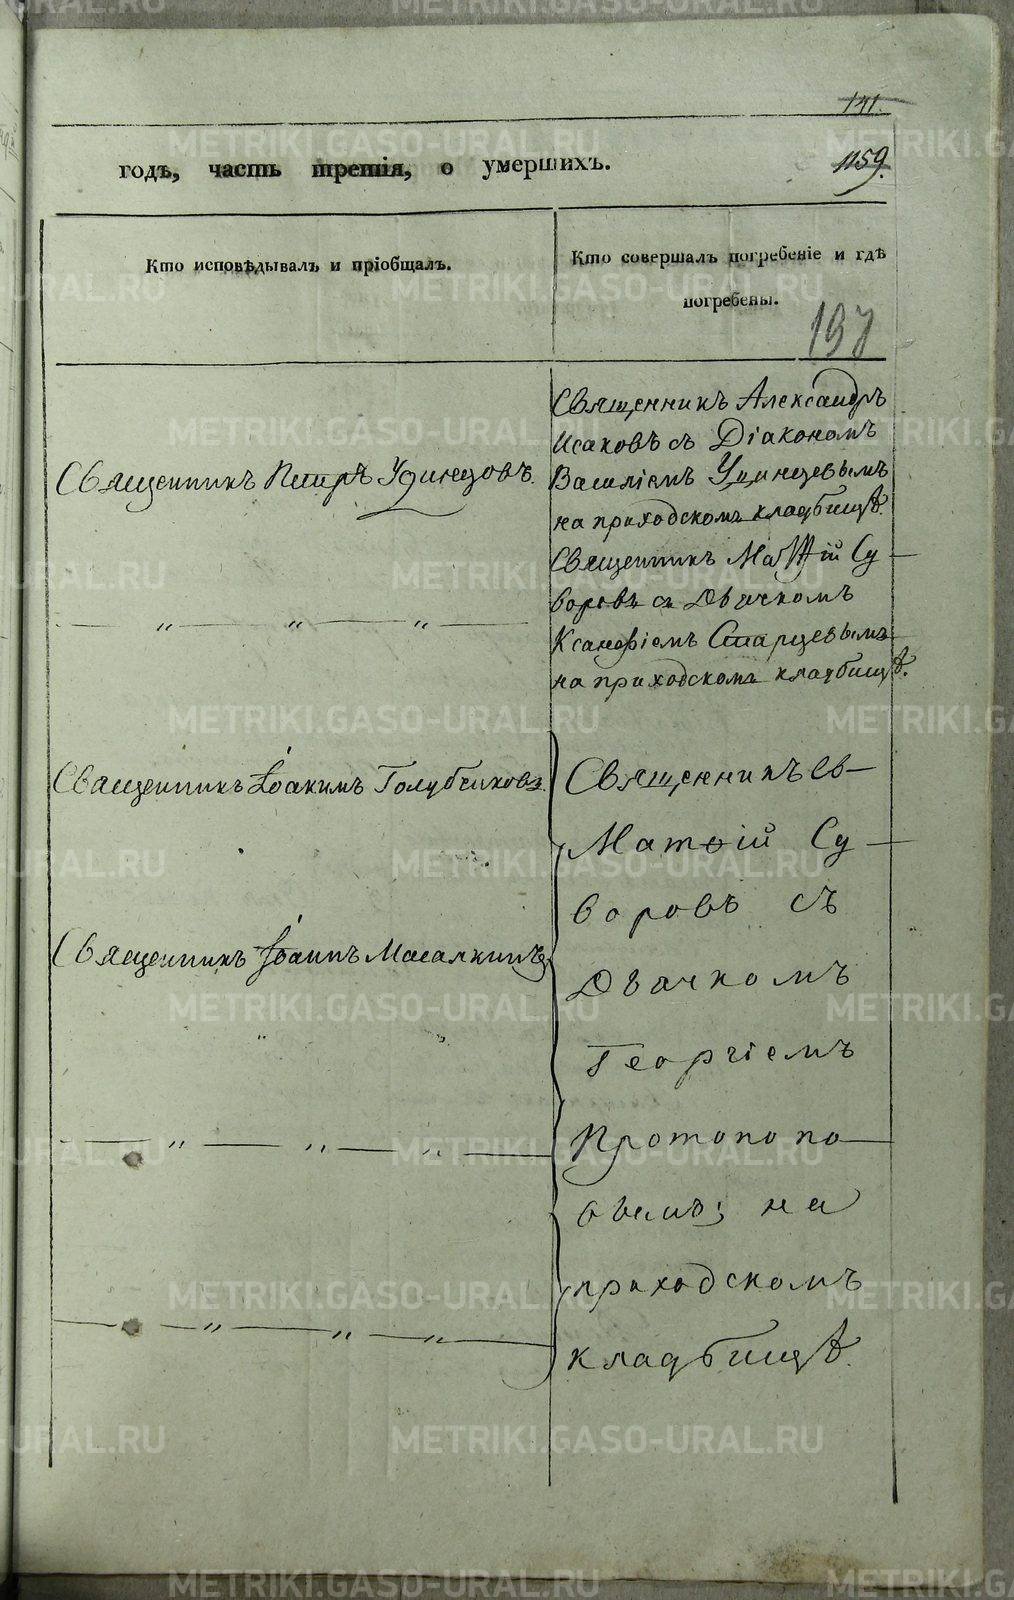 141.
годъ, часть третія, о умершихъ.
1159.
Кто исповѣдывалъ и пріобщалъ.
Кто совершалъ погребеніе и гдѣ
погребены.
197
Священникъ Петръ Удинцовъ.
Священникъ Александръ
Исаковъ съ Діакономъ
Василіемъ Удинцевымъ
на приходскомъ кладбищѣ.
Священникъ Матѳій Су-
воровъ съ Дьячкомъ
Ксанофіемъ Старцевымъ
на приходскомъ кладбищѣ.
— „ — „ — „ —
Священникъ Іоакимъ Голубчиковъ.
Священникъ Іоаннъ Масалкинъ
— „ — „ — „ —
— „ — „ — „ —
Священникъ
Матѳій Су-
воровъ съ
Дьячкомъ
Георгіемъ
Протопопо-
вымъ; на
приходскомъ
кладбищѣ.
METRIKI.GASO-URAL.RU